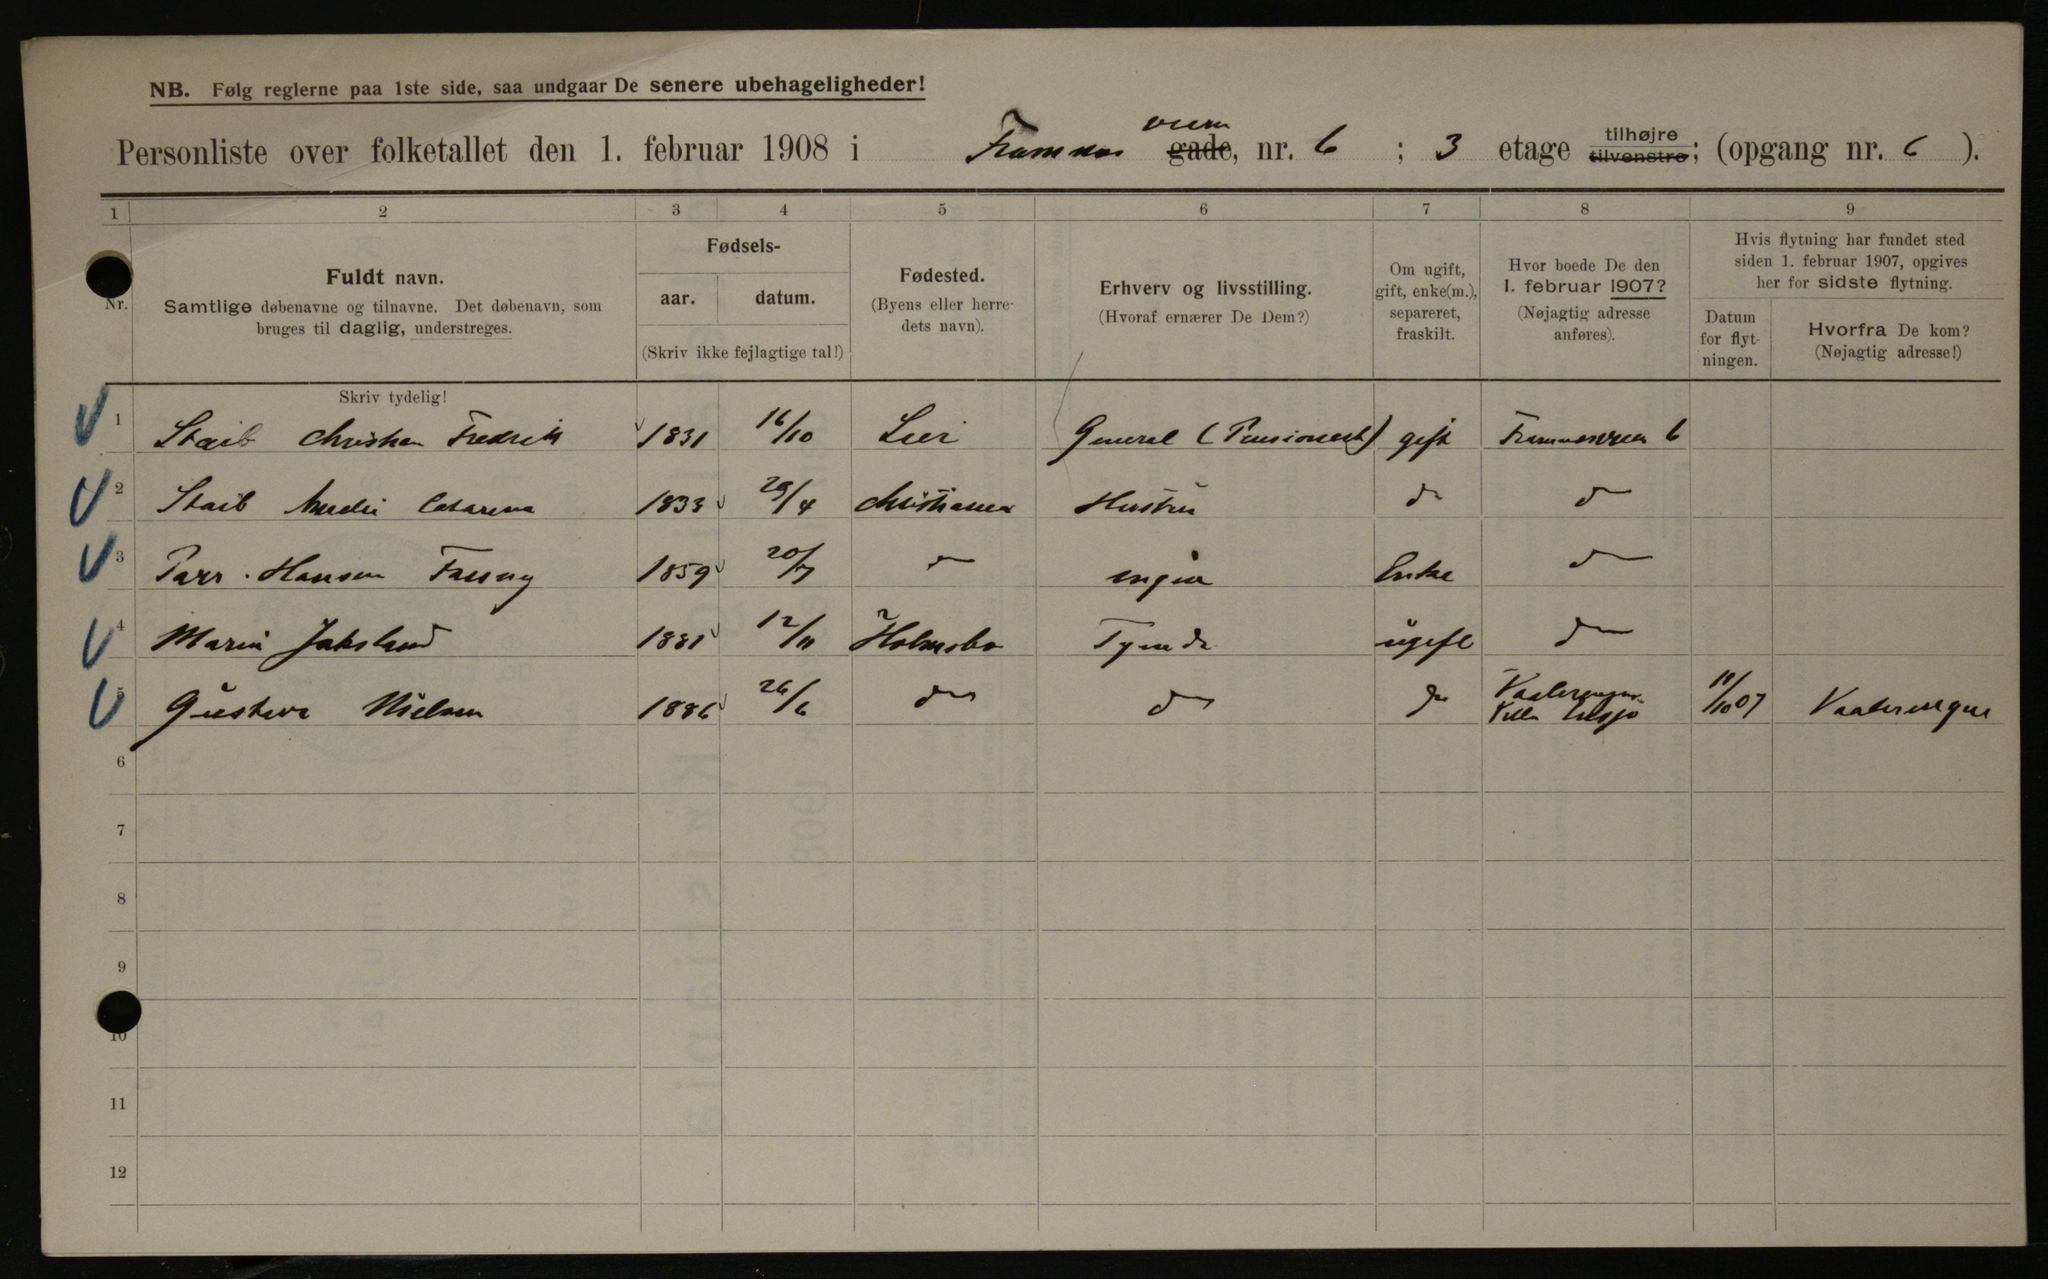 NB. Følg reglerne paa 1ste side, saa undgaar De senere ubehageligheder!
Personliste over folketallet den 1. februar 1908 i Framnæs veien gade, nr. 6 ; 3 etage tilhøjre tilvenstre; (opgang nr. 6 ).
1 2 3 4 5 6 7 8 9
Nr.
Fuldt navn.
Samtlige døbenavne og tilnavne. Det døbenavn, som
bruges til daglig, understreges.
Fødsels-
aar. datum.
(Skriv ikke fejlagtige tal!)
Fødested.
(Byens eller herre-
dets navn).
Erhverv og livsstilling.
(Hvoraf ernærer De Dem?)
Om ugift,
gift, enke(m.),
separeret,
fraskilt.
Hvor boede De den
1. februar 1907?
(Nøjagtig adresse
anføres).
Hvis flytning har fundet sted
siden 1. februar 1907, opgives
her for sidste flytning.
Datum
for flyt-
ningen.
Hvorfra De kom?
(Nøjagtig adresse!)
Skriv tydelig!
1 Staib Christian Fredrik 1831 16/10 Lier General (Pensionert) gift Framnesveien 6
2 Staib Catarina 1833 29/4 Christiania Hustru do do
3 Parr. Hansen Fanny 1859 20/7 do ingen Enke do
4 Marie Jakslund 1881 12/11 Holmsbo Tjende ugift do
5 Gustava Nielsen 1886 26/6 do do do Vaalerengen Villa 11/10 07 Vaalerengen
6
7
8
9
10
11
12